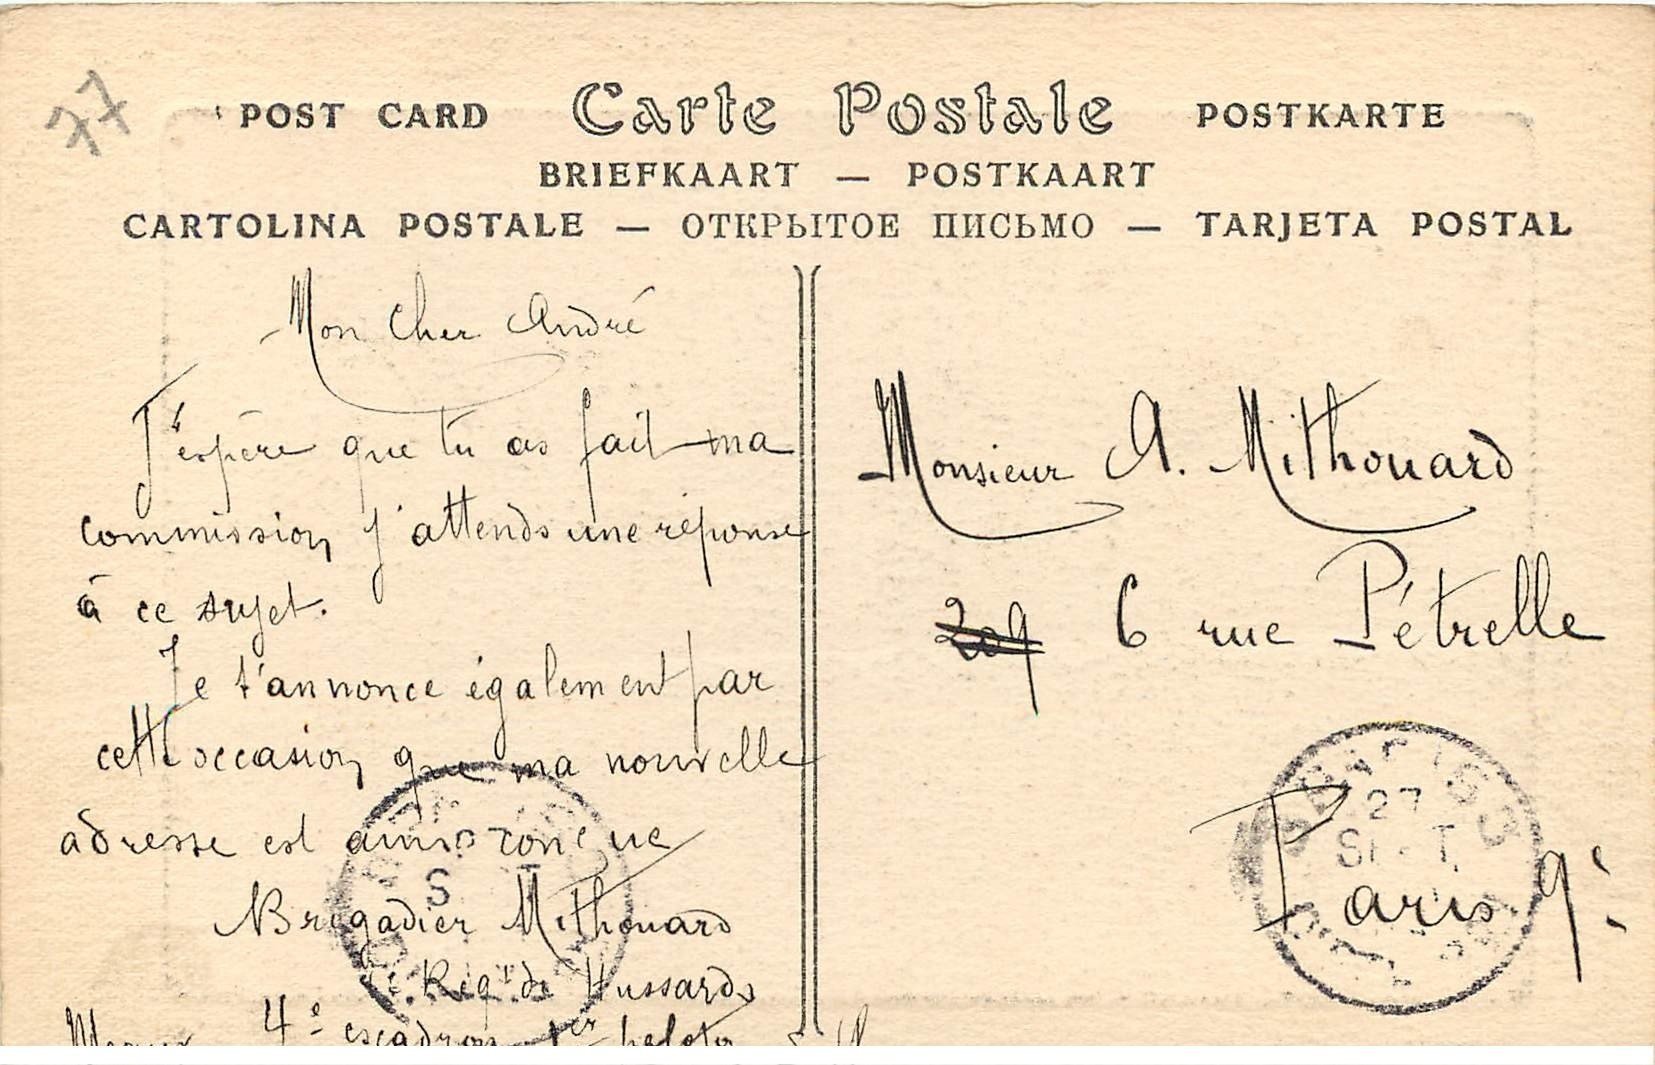 77
POST CARD Carte Postale POSTKARTE
BRIEFKAART — POSTKAART
CARTOLINA POSTALE — ОТКРЫТОЕ ПИСЬМО — TARJETA POSTAL
Mon Cher André
J'espère que tu as fait ma
commission, j'attends une réponse
à ce sujet.
Je t'annonce également par
cette occasion, que ma nouvelle
adresse est ainsi conçue
Brigadier Mithouard
Régt de Hussards
Meaux 4e escadron 1er peloton
Monsieur A. Mithouard
209 6 rue Pétrelle
Paris 9e
27